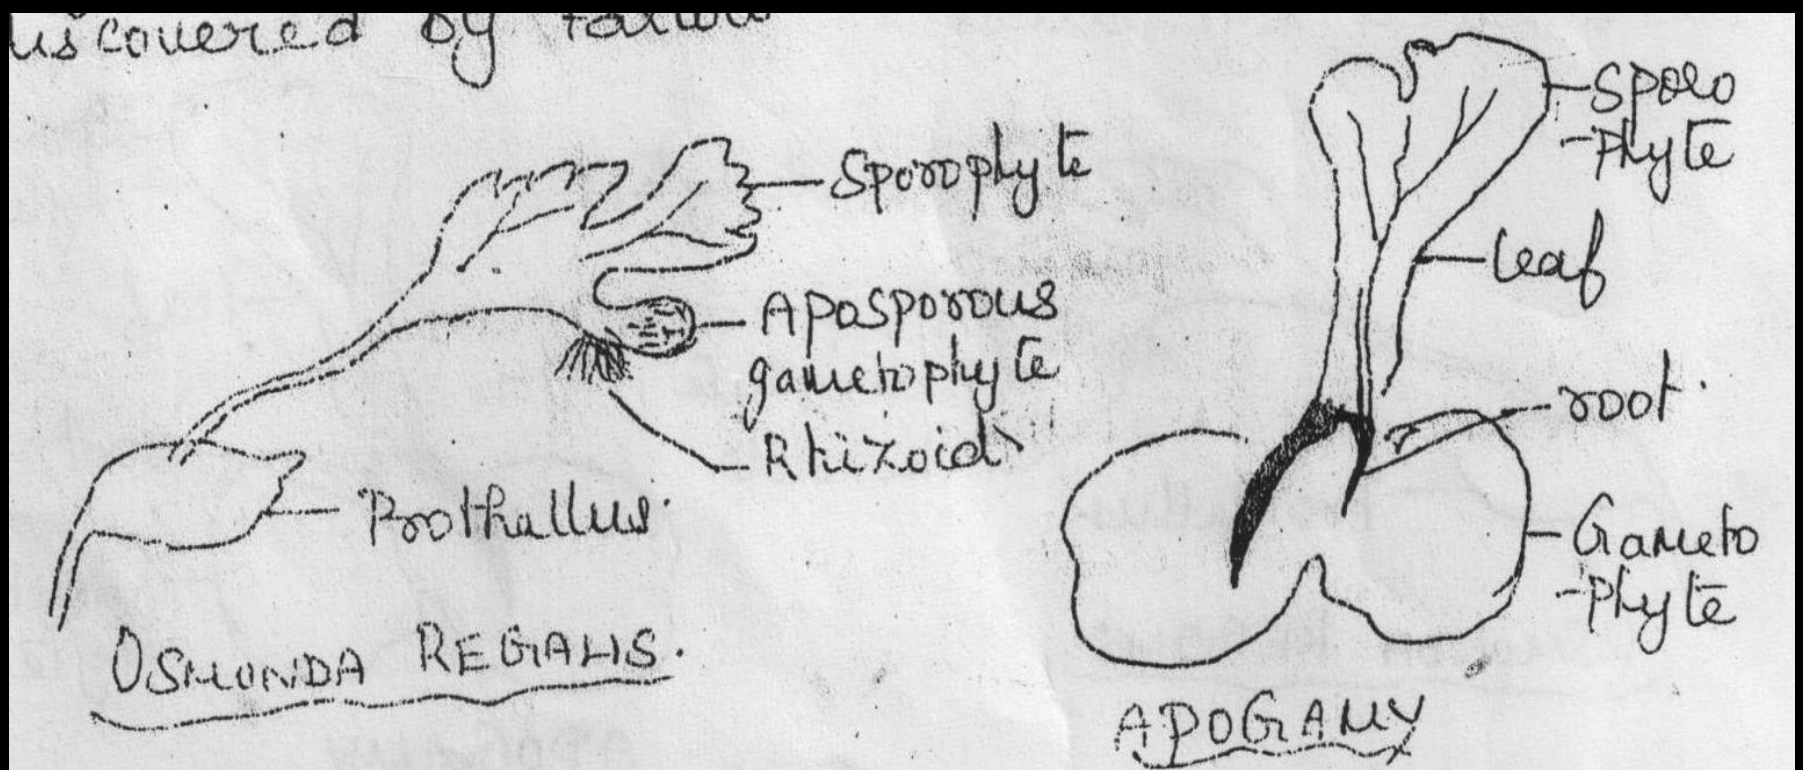 discovered by Farlow
Sporophyte
Aposporous
gametophyte
Rhizoid
Prothallus.
OSMUNDA REGALIS.
Sporo
-Phyte
leaf
root.
Gameto
-Phyte
APOGAMY